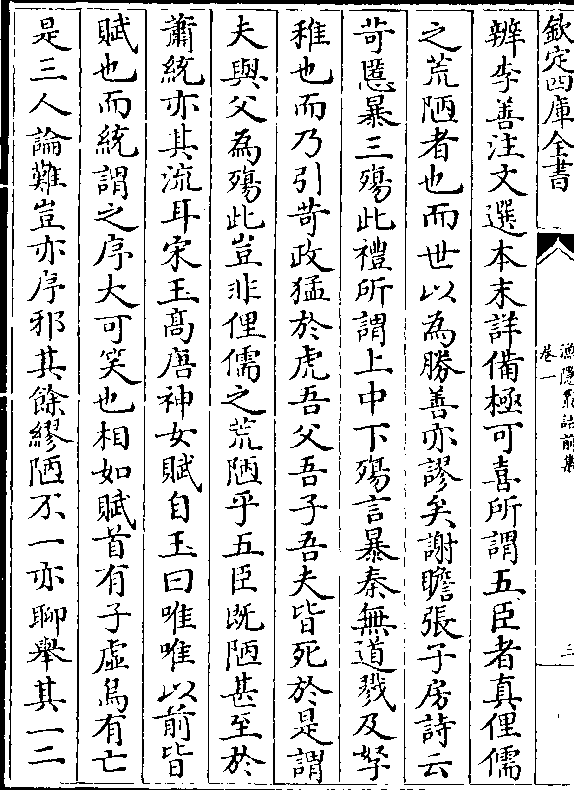 欽定四庫全書
漁隱叢話前集
卷一
三
辨李善注文選本末詳備極可喜所謂五臣者真俚儒
之荒陋者也而世以為勝善亦謬矣謝瞻張子房詩云
苛慝暴三殤此禮所謂上中下殤言暴秦無道戮及孥
稚也而乃引苛政猛於虎吾父吾子吾夫皆死於是謂
夫與父為殤此豈非俚儒之荒陋乎五臣既陋甚至於
蕭統亦其流耳宋玉髙唐神女賦自玉曰唯唯以前皆
賦也而統謂之序大可笑也相如賦首有子虛烏有亡
是三人論難豈亦序邪其餘繆陋不一亦聊舉其一二